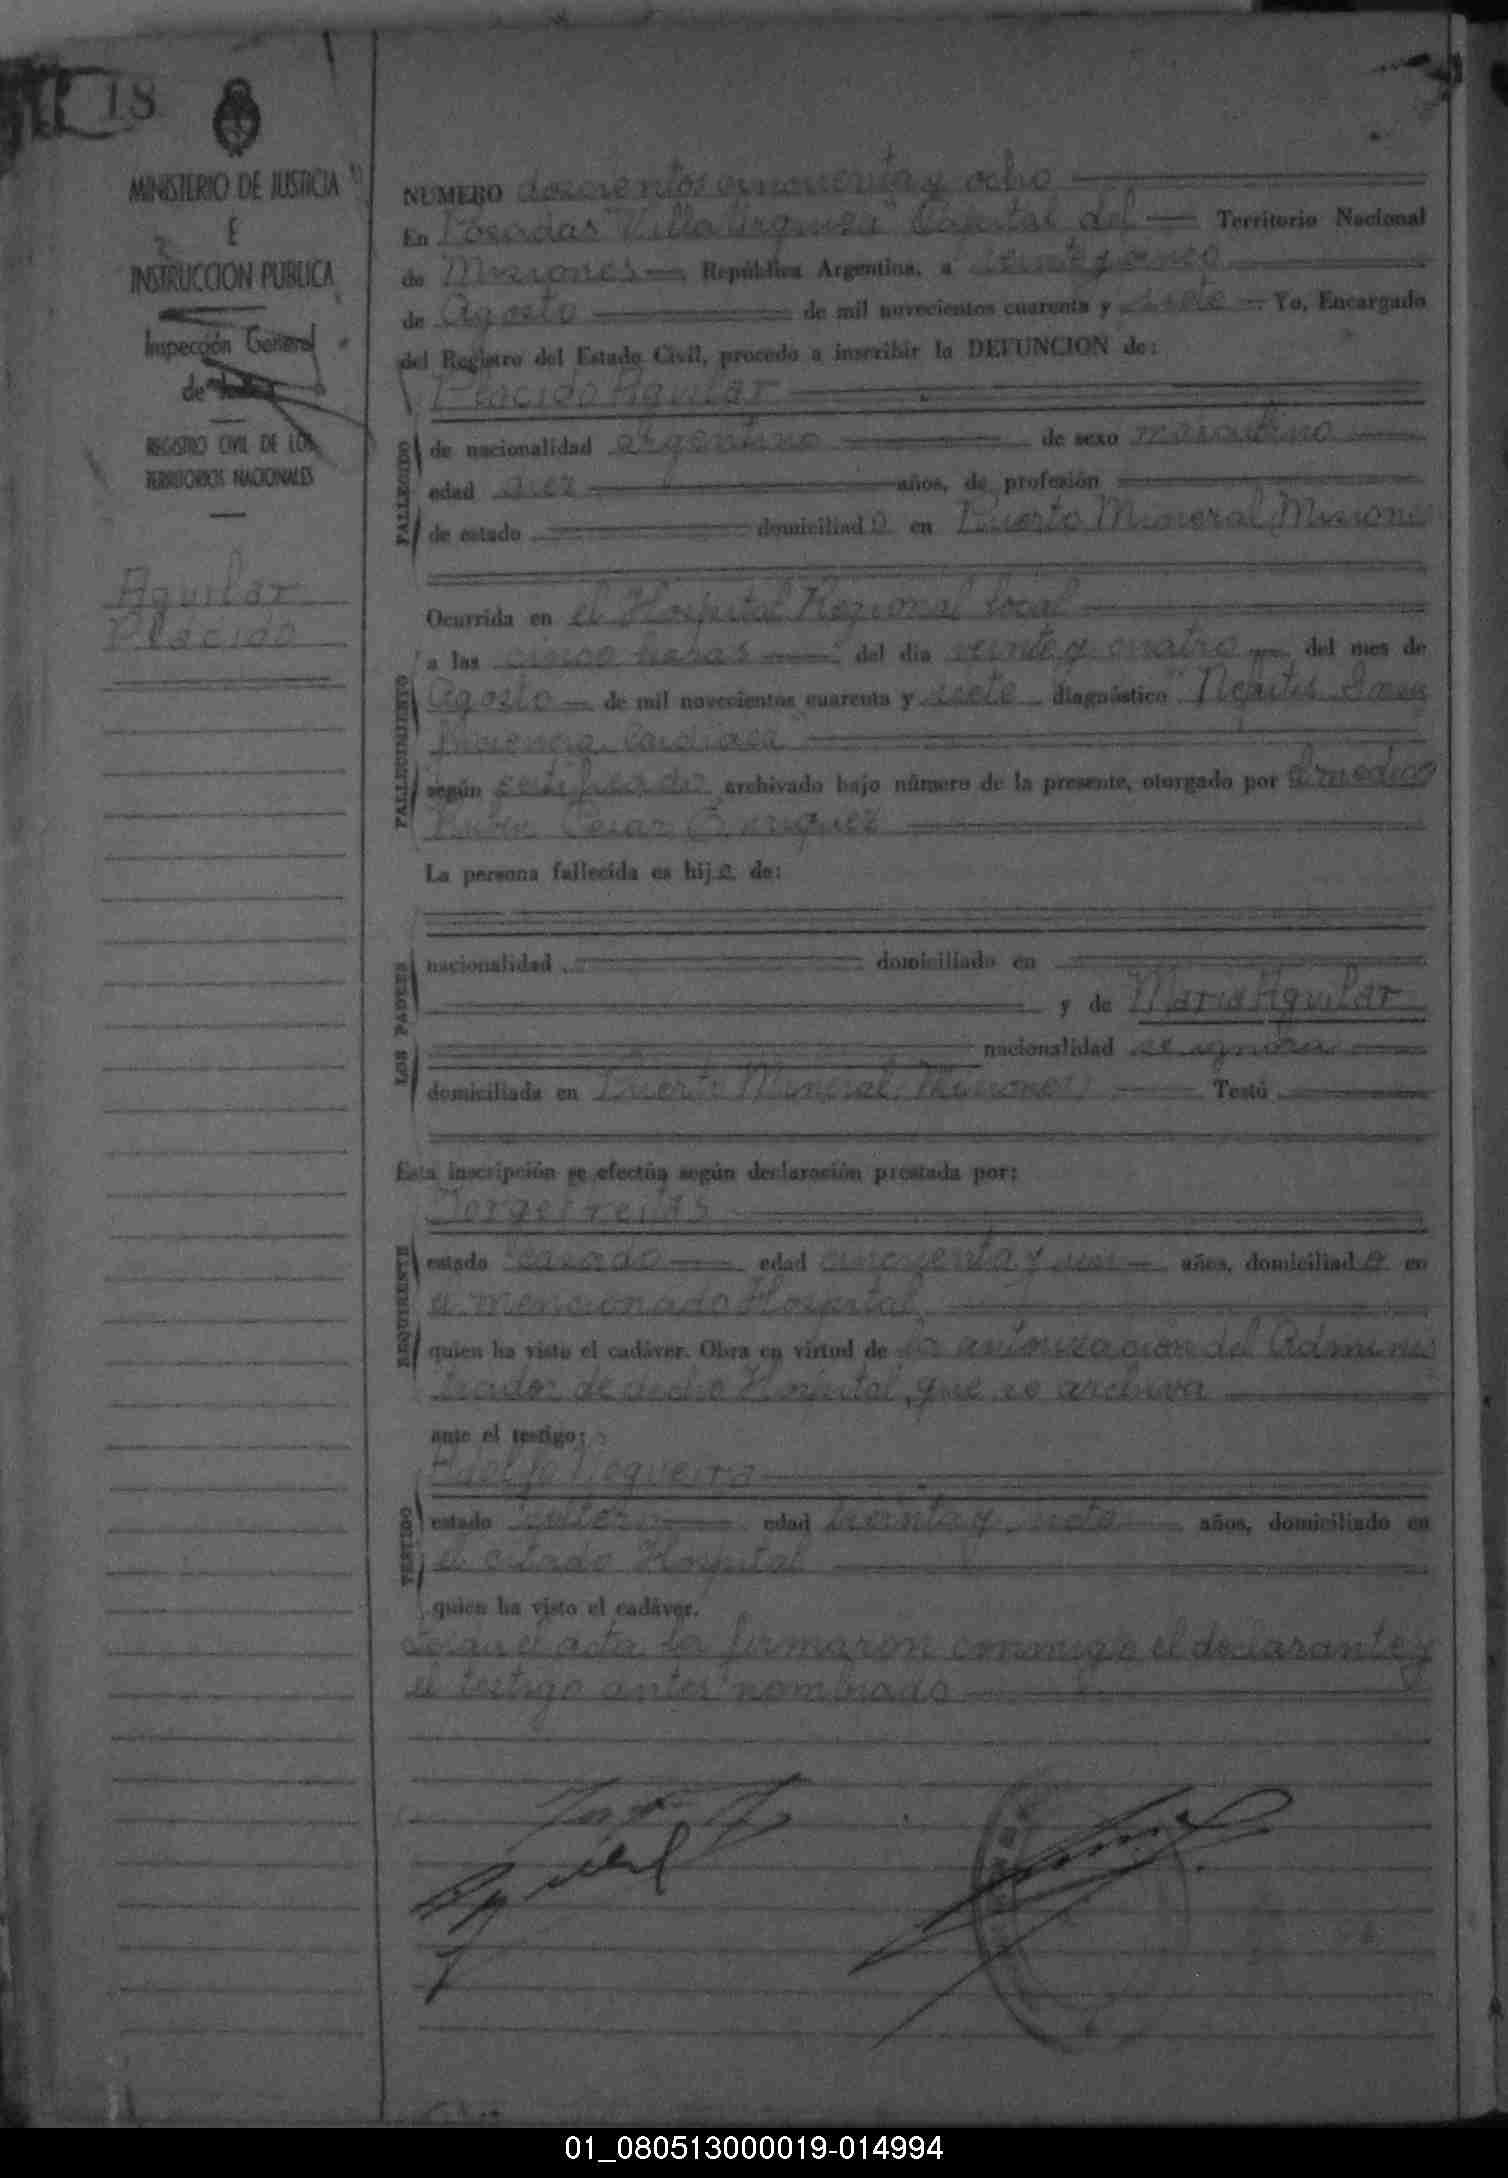 18
MINISTERIO DE JUSTICIA
E
INSTRUCCION PUBLICA
Inspección General
de
REGISTRO CIVIL DE LOS
TERRITORIOS NACIONALES
Aguilar
Placido
NUMERO doscientos cincuenta y ocho
En Posadas "Villa Urquiza" Capital del Territorio Nacional
de Misiones República Argentina, a veinte y cinco
de Agosto de mil novecientos cuarenta y siete Yo, Encargado
del Registro del Estado Civil, procedo a inscribir la DEFUNCION de:
Placido Aguilar
FALLECIDO
de nacionalidad argentino de sexo masculino
edad diez años, de profesión
de estado domiciliado en Puerto Mineral, Misiones
FALLECIMIENTO
Ocurrida en el Hospital Regional local
a las cinco horas del día veinte y cuatro del mes de
Agosto de mil novecientos cuarenta y siete diagnóstico "Nefritis
Cardiaca"
según certificado archivado bajo número de la presente, otorgado por el medico
Cesar
La persona fallecida es hijo de:
LOS PADRES
nacionalidad domiciliado en
y de Maria Aguilar
nacionalidad se ignora
domiciliada en Puerto Mineral, Misiones Testó
Esta inscripción se efectúa según declaración prestada por:
REQUIRENTE
Jorge Freitas
estado casado edad cincuenta y años, domiciliado en
el mencionado Hospital
quien ha visto el cadáver. Obra en virtud de la autorización del Adminis
trador de dicho Hospital, que se archiva
ante el testigo:
TESTIGO
Adolfo Nogueira
estado soltero edad treinta y siete años, domiciliado en
el citado Hospital
quien ha visto el cadáver.
Leida el acta la firmaron conmigo el declarante y
el testigo antes nombrado
01_080513000019-014994